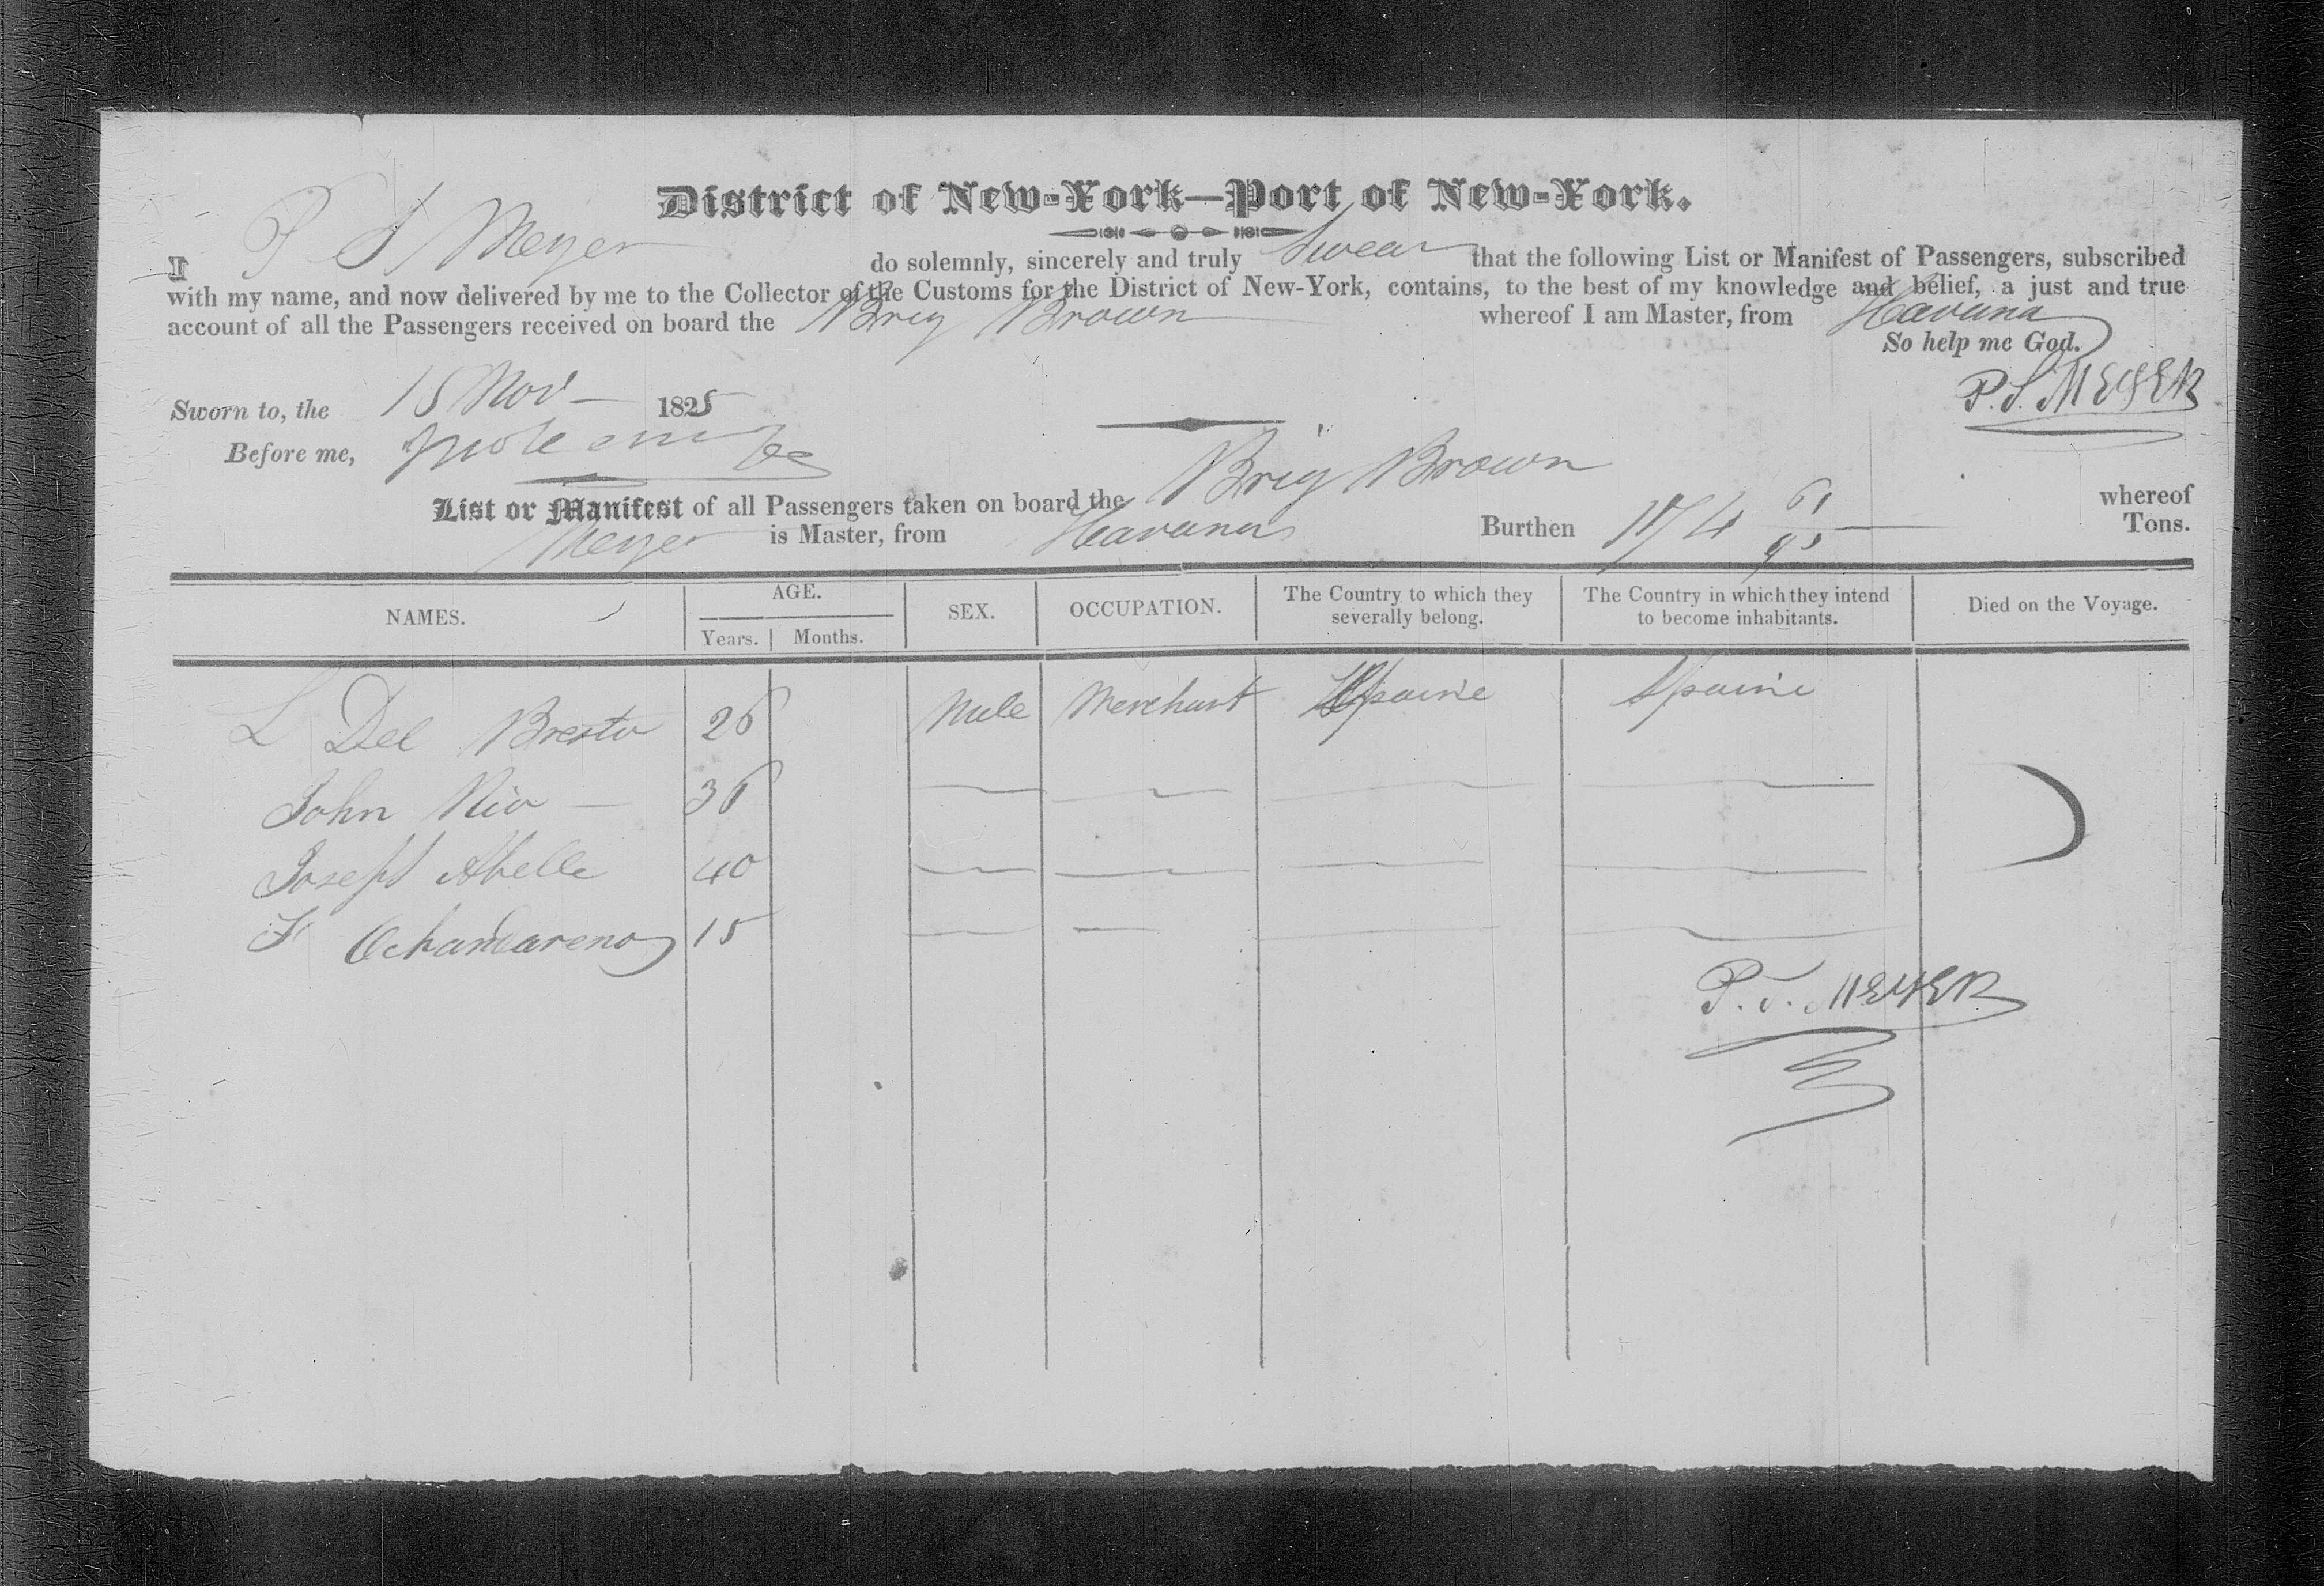 District of New-York—Port of New-York.
I P S Meyer do solemnly, sincerely and truly Swear that the following List or Manifest of Passengers, subscribed
with my name, and now delivered by me to the Collector of the Customs for the District of New-York, contains, to the best of my knowledge and belief, a just and true
account of all the Passengers received on board the Brig Brown whereof I am Master, from Havana
So help me God.
Sworn to, the 15 Nov 1825 P. S. MEYER
Before me,
List or Manifest of all Passengers taken on board the Brig Brown whereof
Meyer is Master, from Havana Burthen 174 61/95 Tons.
NAMES. AGE. SEX. OCCUPATION. The Country to which they severally belong. The Country in which they intend to become inhabitants. Died on the Voyage.
Years. Months.
L Del Bresto 26 Male Merchant Spaine Spaine
John Rio — 36
Joseph Abelle 40
F 15
P. S. MEYER